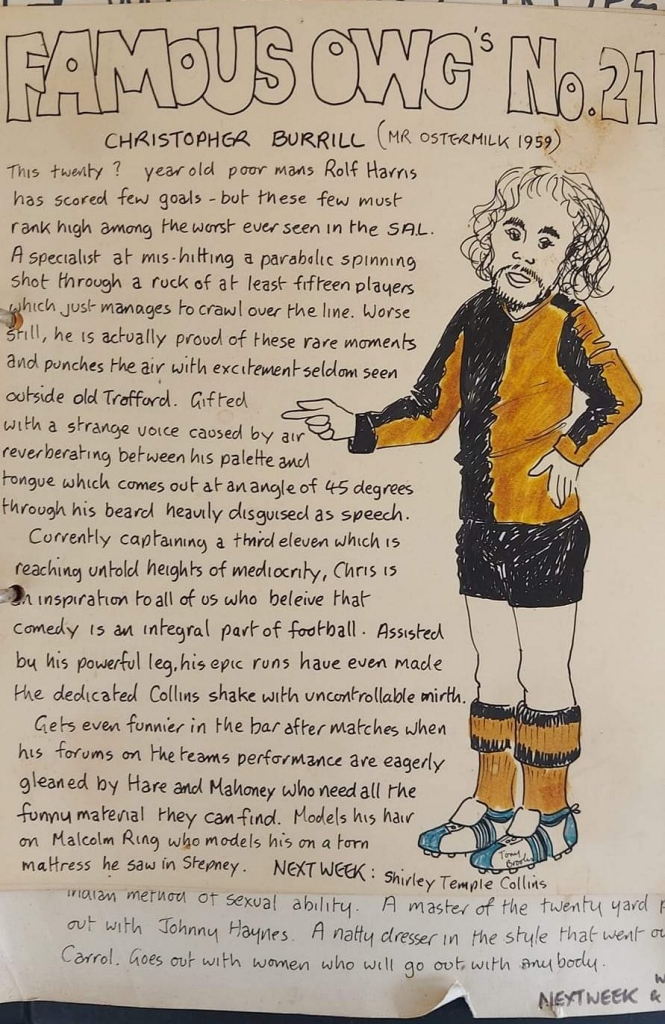 FAMOUS OWG'S No.21
CHRISTOPHER BURRILL (MR OSTERMILK 1959)
This twenty ? year old poor mans Rolf Harris
has scored few goals - but these few must
rank high among the worst ever seen in the S.A.L.
A specialist at mis-hitting a parabolic spinning
shot through a ruck of at least fifteen players
which just manages to crawl over the line. Worse
still, he is actually proud of these rare moments
and punches the air with excitement seldom seen
outside old Trofford. Gifted
with a strange voice caused by air
reverberating between his palette and
tongue which comes out at an angle of 45 degrees
through his beard heavily disguised as speech.
Currently captaining a third eleven which is
reaching untold heights of mediocrity, Chris is
an inspiration to all of us who beleive that
comedy is an integral part of football. Assisted
by his powerful leg, his epic runs have even made
the dedicated Collins shake with uncontrollable mirth.
Gets even funnier in the bar after matches when
his forums on the teams performance are eagerly
gleaned by Hare and Mahoney who need all the
funny material they can find. Models his hair
on Malcolm Ring who models his on a torn
mattress he saw in Stepney. NEXT WEEK : Shirley Temple Collins
Tony Brooks
Indian method of sexual ability. A master of the twenty yard
out with Johnny Haynes. A natty dresser in the style that went
Carrol. Goes out with women who will go out with anybody.
NEXT WEEK &